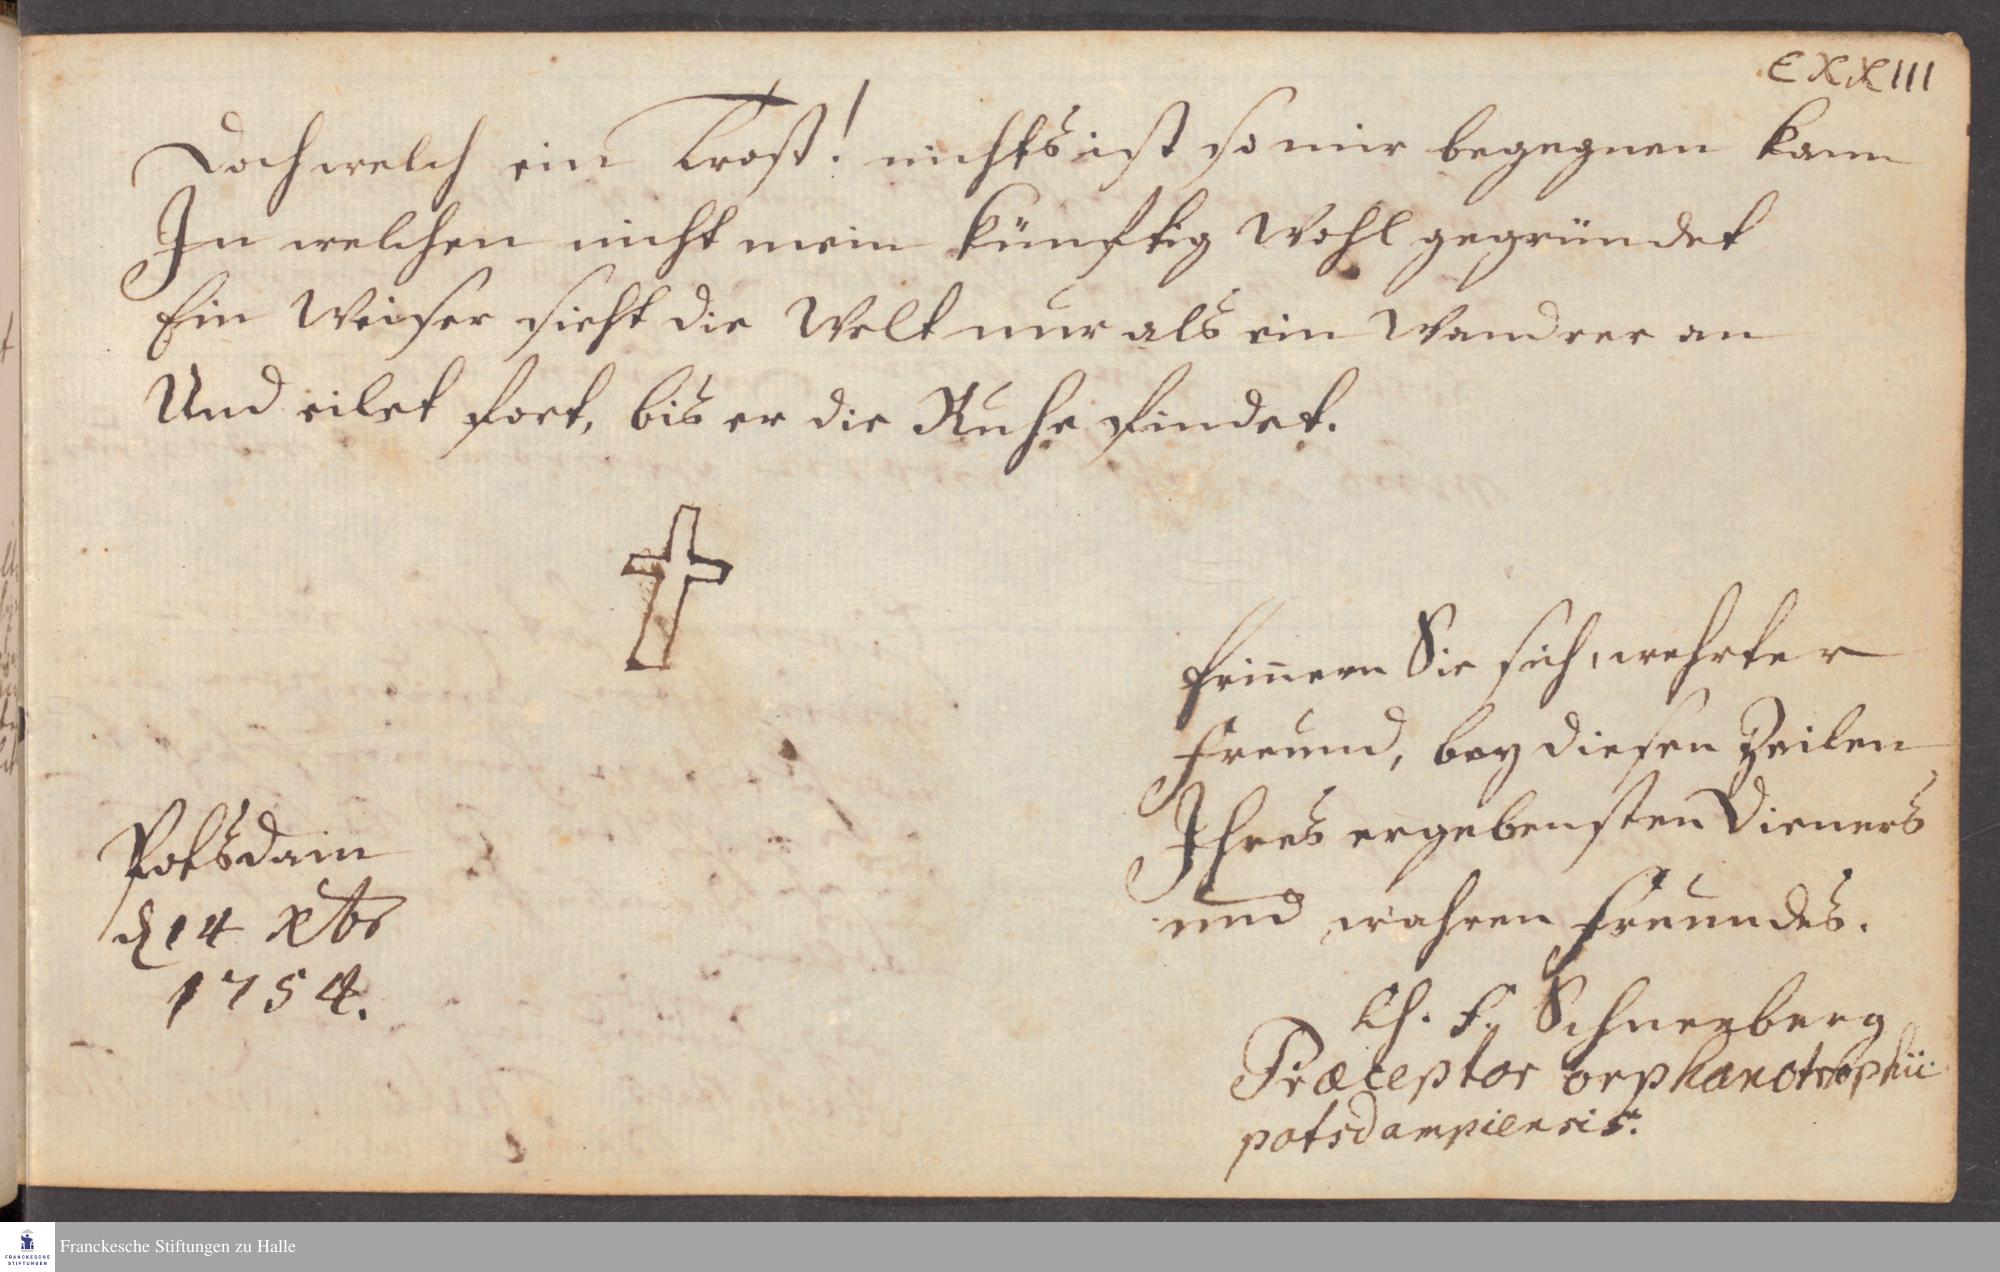 CXXIII
Doch welch ein Trost! nichts ist so mir begegnen kann
In welchen nicht mein künftig Wohl gegründet
Ein Weiser sieht die Welt nur als ein Wandrer an
Und eilet fort, bis er die Ruhe findet.
Erin̅ern Sie sich, wehrter
Freund, bey diesen Zeilen
Ihres ergebensten Dieners
und wahren Freundes.
Ch. F. Schneeberg
Præceptor orphanotrophii
potsdampiensis.
Potsdam
d 14 Xbr
1754.
FRANCKESCHE
STIFTUNGEN
Franckesche Stiftungen zu Halle